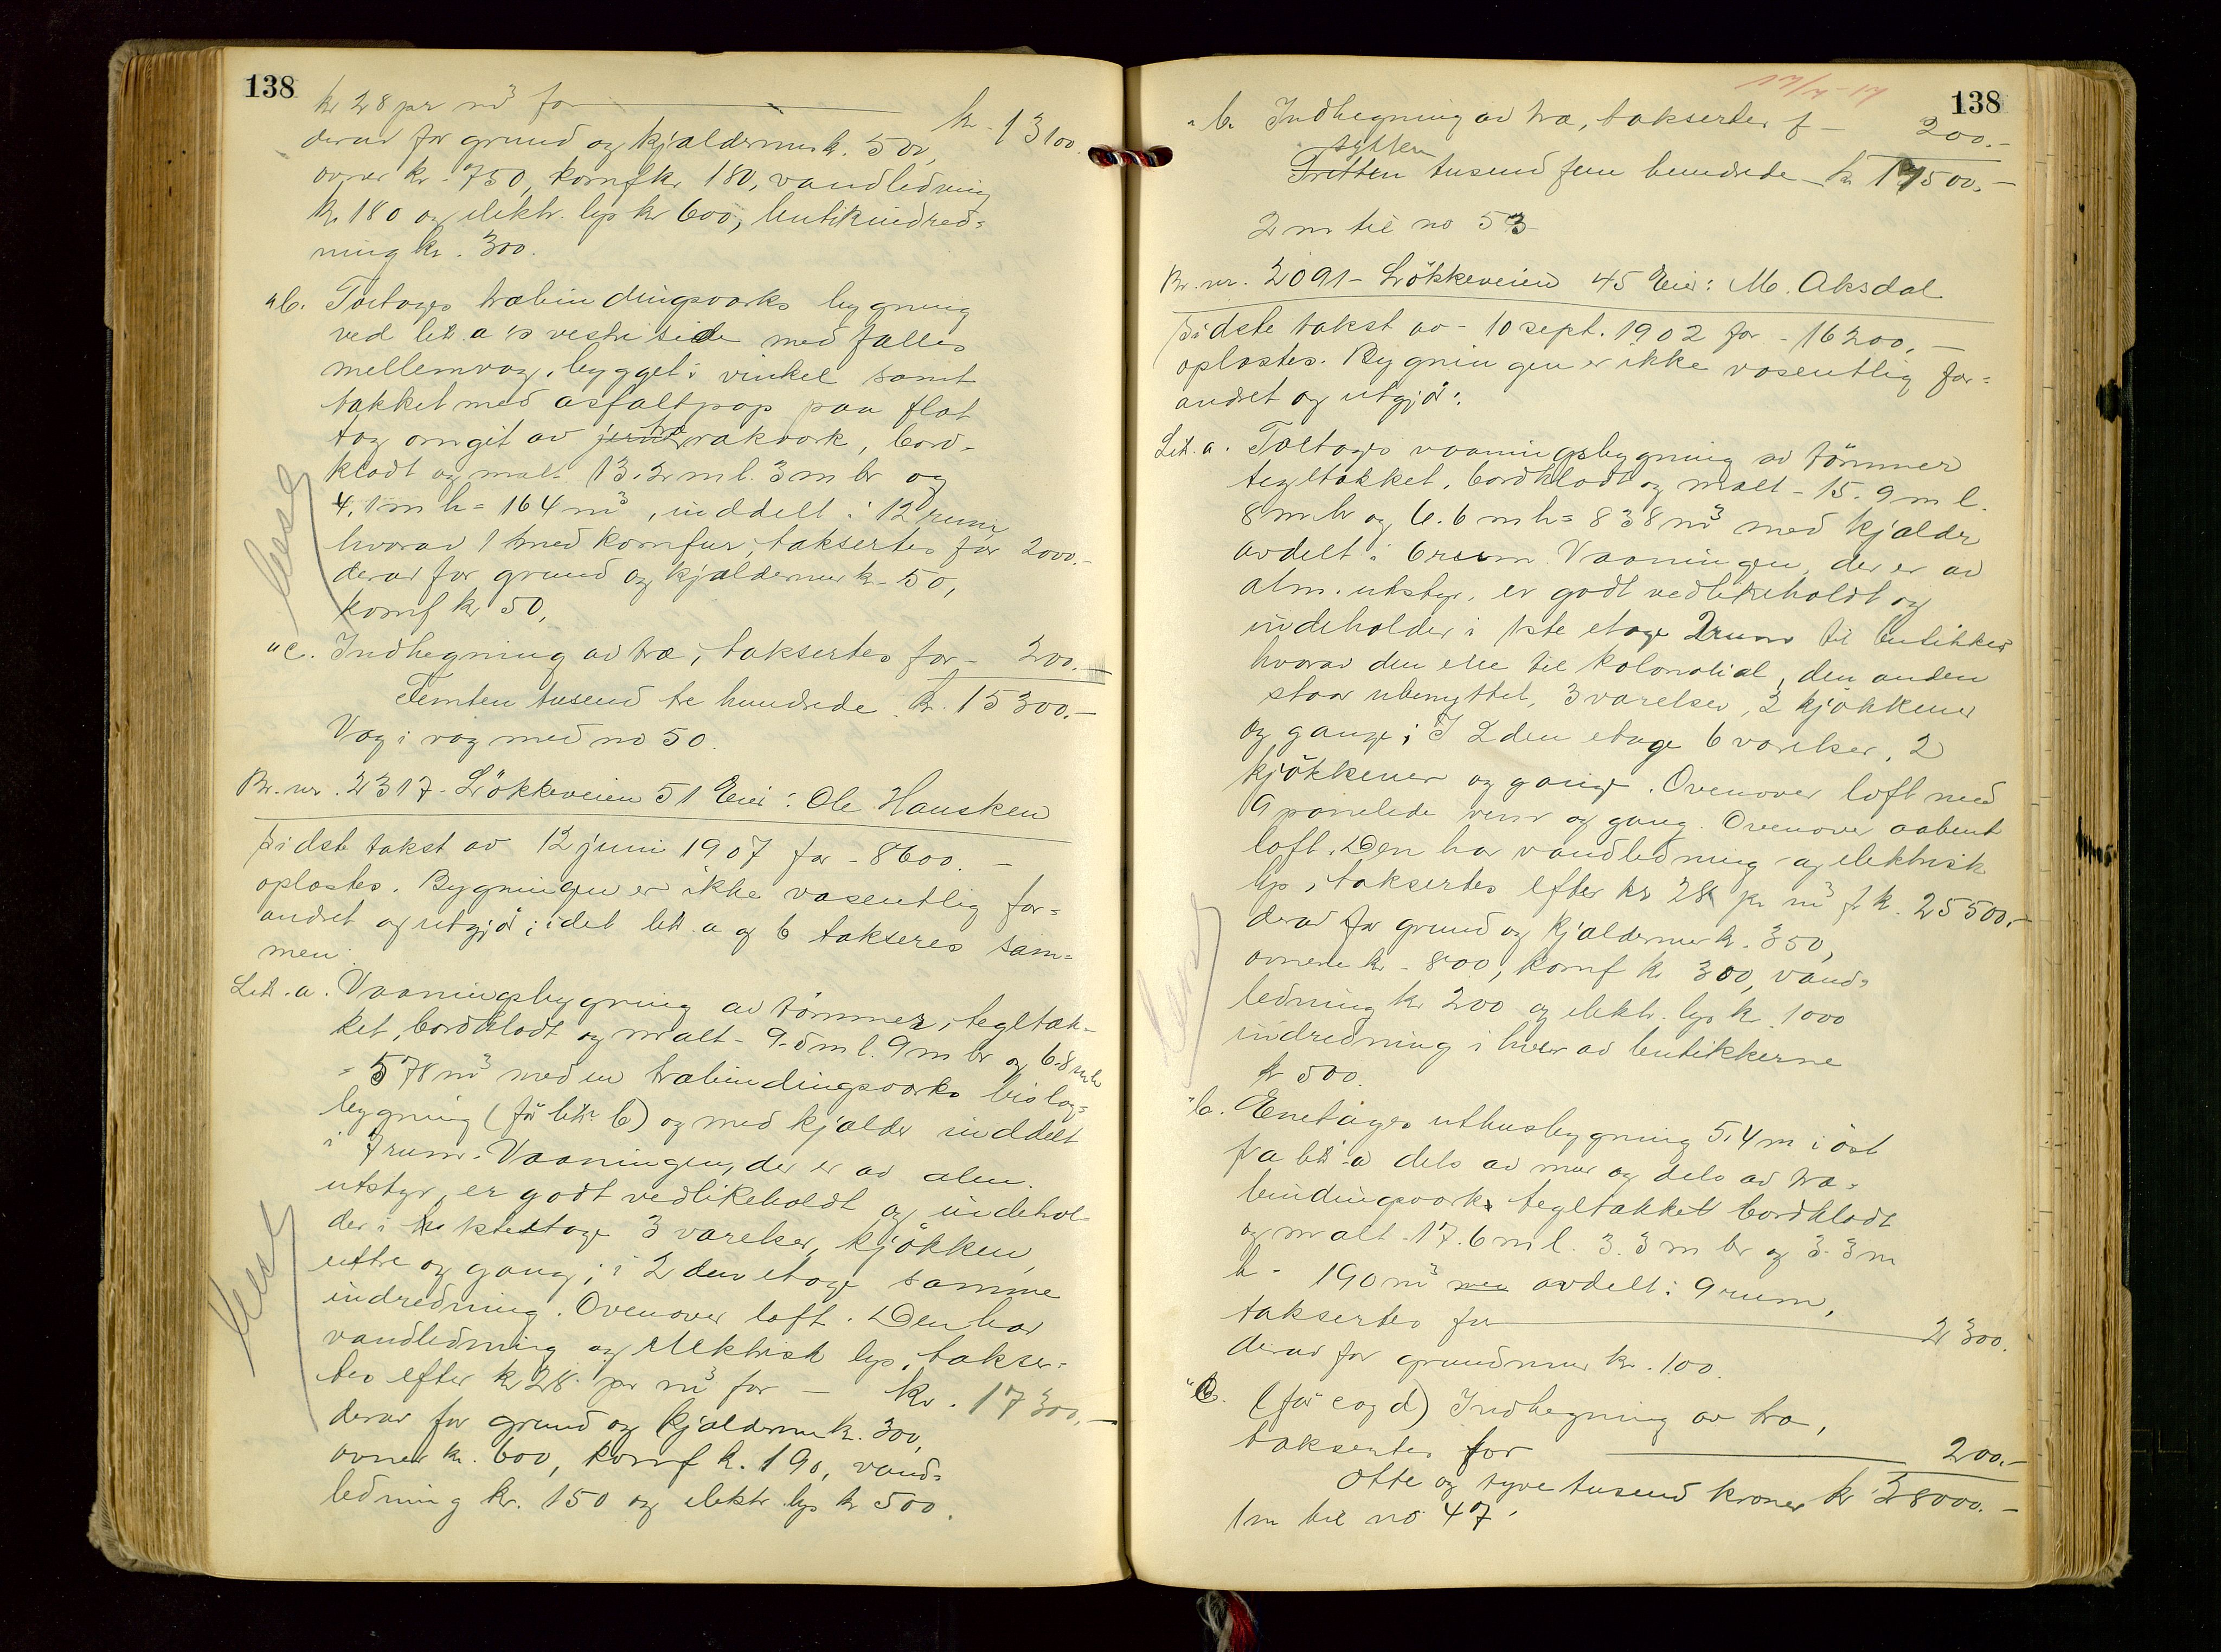 138
kr 28 pr m³ for kr. 13100.
derav for grund og kjældermur k. 500,
ovner kr. 750, komf kr 180, vandledning
kr. 180 og elektr. lys kr 600, butikindred=
ning kr. 300.
"b. Toetages træbindingsverks bygning
ved litt. a's vestre side med fælles
mellemvæg, bygget i vinkel samt
tækket med asfaltpap paa flat
tag omgit av jern træ rækværk, bord-
klædt og malt 13.2 m l. 3 m br og
4.1 m h = 164 m³, inddelt i 12 rum
hvorav 1 med komfur, taksertes for 2000.-
derav for grund og kjældermur k. 50,
komf kr 50,
"c. Indhegning av træ, taksertes for - 200.-
Femten tusend tre hundrede kr. 15300.-
Væg i væg med no 50.
Br. nr. 2317 - Lökkeveien 51 Eier: Ole Hausken
Sidste takst av 12 juni 1907 for - 8600.-
oplæstes. Bygningen er ikke væsentlig for=
andret og utgjør; idet litt. a og b takseres sam=
men.
Litt. a. Vaaningsbygning av tömmer, tegltæk-
ket, bordklædt og malt - 9.5 m l. 9 m br og 6.8 m h
= 578 m³ med en træbindingsverks bislag=
bygning (før litt. b) og med kjælder inddelt
i 7 rum. Vaaningen, der er av alm.
utstyr, er godt vedlikeholdt og indehol-
der i 1ste etage 3 værelser, kjökken,
entre og gang; i 2den etage samme
indredning. Ovenover loft. Den har
vandledning og elektrisk lys, takser=
tes efter kr 28 pr m³ for - kr. 17300.-
derav for grund og kjældermur k. 300,
ovner kr. 600, komf k. 190, vand=
ledning kr. 150 og elektr. lys kr 500.
138
"b. Indhegning av træ, taksertes f - 200.-
sytten
Fretten tusend fem hundrede - kr 17500.-
2 m til no 53
Br. nr. 2091 - Lökkeveien 45 Eier: M. Aksdal
Sidste takst av - 10 sept. 1902 for - 16200.-
oplæstes. Bygningen er ikke væsentlig for=
andret og utgjør:
Litt. a. Toetages vaaningsbygning av tömmer
tegltækket, bordklædt og malt - 15.9 m l.
8 m br og 6.6 m h = 838 m³ med kjælder
avdelt i 6 rum. Vaaningen, der er av
alm. utstyr, er godt vedlikeholdt og
indeholder i 1ste etage 2 rum til butikker
hvorav den ene til kolonial, den anden
staar ubenyttet, 3 værelser, 2 kjökkener
og gange; I 2den etage 6 værelser, 2
kjökkener og gange. Ovenover loft med
9 panelede rum og gang. Ovenover aabent
loft. Den har vandledning og elektrisk
lys, taksertes efter kr 28 pr m³ f k. 25500.-
derav for grund og kjældermur k. 350,
ovnene kr. 800, komf kr 300, vand=
ledning kr 200 og elektr. lys k. 1000
indredning i hver av butikkerne
kr 500.
"b. Enetages uthusbygning 5.4 m i öst
fra litt. a dels av mur og dels av træ=
bindingsverk, tegltækket bordklædt
og malt - 17.6 m l. 3.3 m br og 3.3 m
h - 190 m³ avdelt i 9 rum,
taksertes for 2300.
derav for grundmur kr. 100.
"c. (før c og d) Indhegning av træ,
taksertes for 200.-
Otte og tyve tusend kroner kr 28000.-
1 m til no 47.